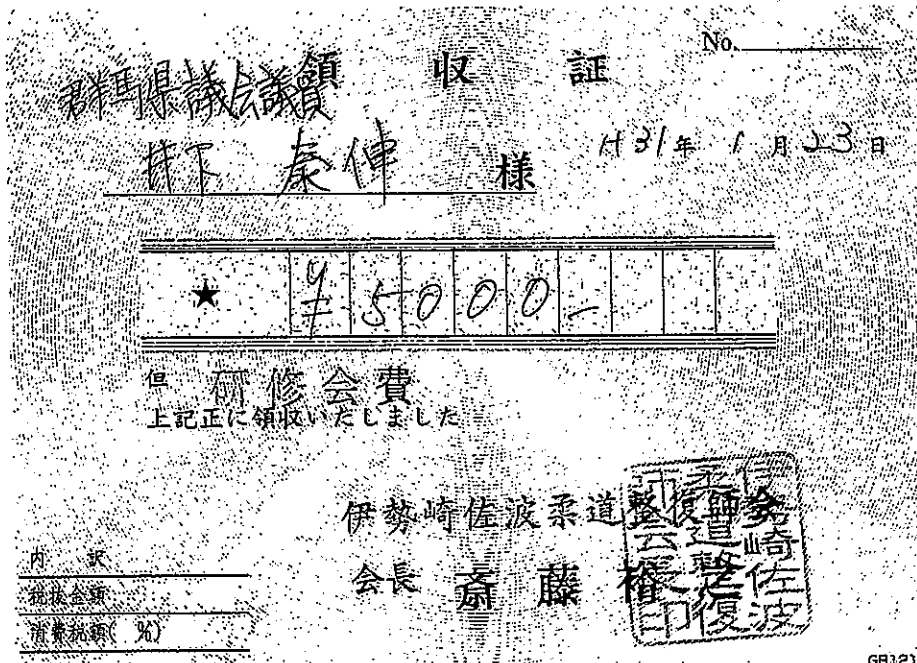 No.
領収証
群馬県議会議員
井下 泰伸 様
H31年 1月23日
★ ¥5000-
但 研修会費
上記正に領収いたしました
伊勢崎佐波柔道整復師会
会長 斎藤
伊勢崎佐波柔道整復師会長印
内訳
税抜金額
消費税額( %)
GB121